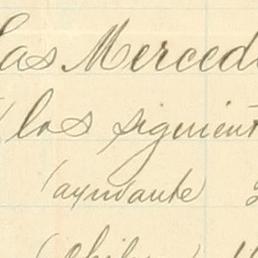 Las Merced
(los siguient
(ayudante)